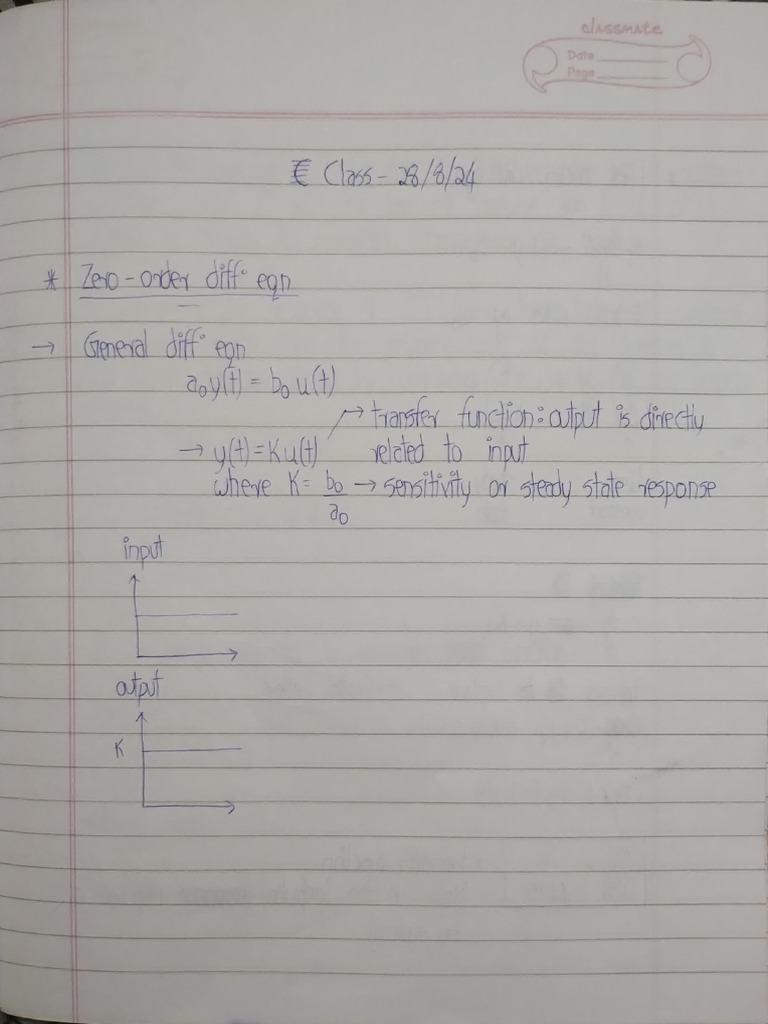 classmate
Date
Page
Class - 28/8/24
* Zero-order diff. eqn
→ General diff. eqn
a₀y(t) = b₀ u(t)
→ transfer function: output is directly
→ y(t) = Ku(t) related to input
where K = b₀/a₀ → sensitivity or steady state response
input
output
K